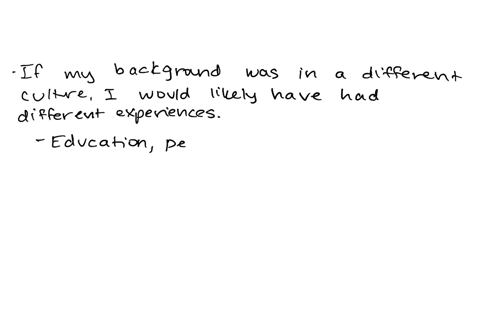 · If my backgrand was in a different
culture, I would likely have had
different experiences.
- Education, pe